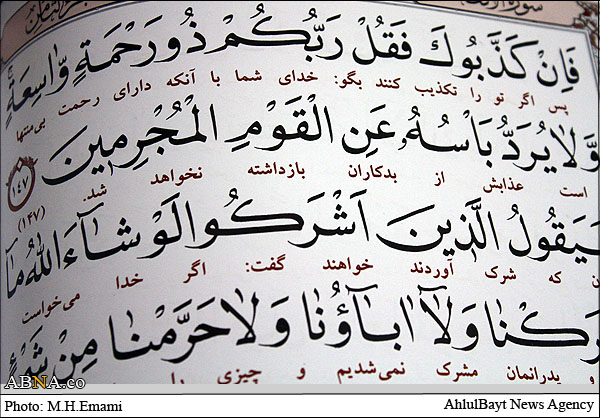 فَاِنْ كَذَّبُوكَ فَقُلْ رَبُّكُمْ ذُو رَحْمَةٍ وَّاسِعَةٍ
پس اگر تو را تکذیب کنند بگو: خدای شما با آنکه دارای رحمت بی‌منتها
وَّلَا يُرَدُّ بَاْسُهُ عَنِ الْقَوْمِ الْمُجْرِمِينَ ١٤٧
است عذابش از بدکاران بازداشته نخواهد شد. (۱۴۷)
سَيَقُولُ الَّذِينَ اَشْرَكُوا لَوْ شَآءَ اللّٰهُ مَآ
که شرک آوردند خواهند گفت: اگر خدا می‌خواست
رَكْنَا وَلَآ اٰبَآؤُنَا وَلَا حَرَّمْنَا مِنْ شَيْءٍ
و پدرانمان مشرک نمی‌شدیم و چیزی را
ABNA.co
Photo: M.H.Emami
AhlulBayt News Agency